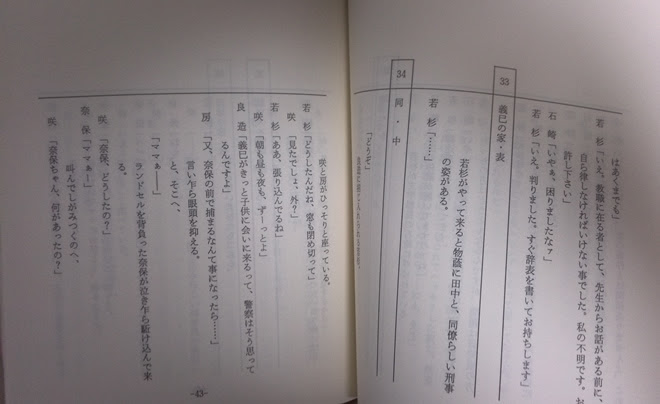 はあくまでも」
若 杉「いえ、教職に在る者として、先生からお話がある前に、
自ら律しなければいけない事でした。私の不明です。お
許し下さい」
石 崎「いやぁ、困りましたなァ」
若 杉「いえ、判りました。すぐ辞表を書いてお持ちします」
33 義巳の家・表
若杉がやって来ると物蔭に田中と、同僚らしい刑事
の姿がある。
若 杉「……」
34 同・中
「どうぞ」
咲と房がひっそりと座っている。
若 杉「どうしたんだね、窓も閉め切って」
咲「見たでしょ、外?」
若 杉「ああ、張り込んでるね」
咲「朝も昼も夜も、ずーっとよ」
良 造「義巳がきっと子供に会いに来るって、警察はそう思って
るんですよ」
房「又、奈保の前で捕まるなんて事になったら……」
言い乍ら眼頭を抑える。
と、そこへ、
「ママぁ――」
ランドセルを背負った奈保が泣き乍ら駈け込んで来
る。
咲「奈保、どうしたの?」
奈 保「ママぁー」
叫んでしがみつくのへ、
咲「奈保ちゃん、何があったの?」
-43-